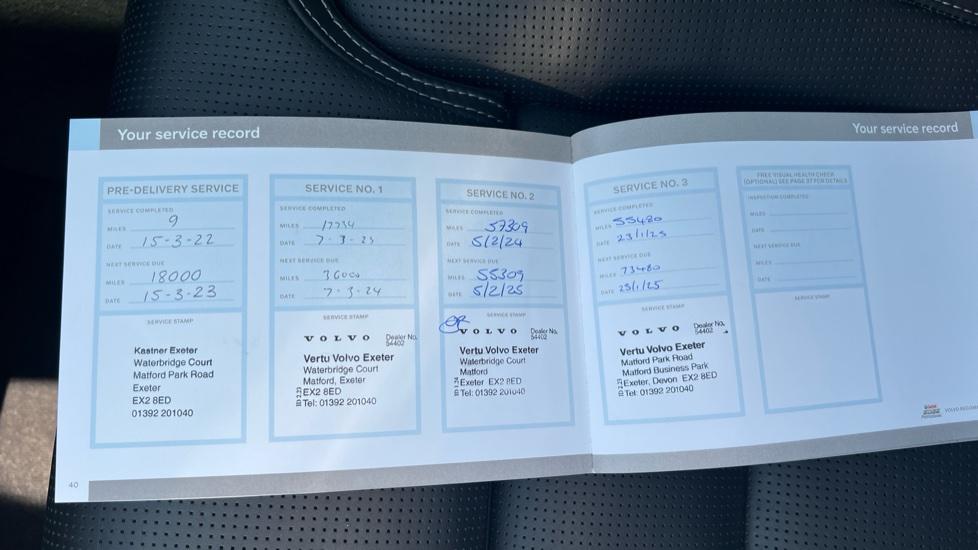 Your service record
PRE-DELIVERY SERVICE
SERVICE COMPLETED
MILES 9
DATE 15-3-22
NEXT SERVICE DUE
MILES 18000
DATE 15-3-23
SERVICE STAMP
Kastner Exeter
Waterbridge Court
Matford Park Road
Exeter
EX2 8ED
01392 201040
SERVICE NO. 1
SERVICE COMPLETED
MILES
DATE 7-3-23
NEXT SERVICE DUE
MILES 36000
DATE 7-3-24
SERVICE STAMP
VOLVO Dealer No.
54402
Vertu Volvo Exeter
Waterbridge Court
Matford, Exeter
EX2 8ED
Tel: 01392 201040
SERVICE NO. 2
SERVICE COMPLETED
MILES 37309
DATE 5/2/24
NEXT SERVICE DUE
MILES 55309
DATE 5/2/25
SERVICE STAMP
VOLVO Dealer No.
54402
Vertu Volvo Exeter
Waterbridge Court
Matford
Exeter EX2 8ED
Tel: 01392 201040
40
Your service record
SERVICE NO. 3
SERVICE COMPLETED
MILES 55480
DATE 23/1/25
NEXT SERVICE DUE
MILES 73480
DATE 23/1/25
SERVICE STAMP
VOLVO Dealer No.
54402
Vertu Volvo Exeter
Matford Park Road
Matford Business Park
Exeter, Devon EX2 8ED
Tel: 01392 201040
FREE VISUAL HEALTH CHECK
(OPTIONAL) SEE PAGE 37 FOR DETAILS
INSPECTION COMPLETED
MILES
DATE
NEXT SERVICE DUE
MILES
DATE
SERVICE STAMP